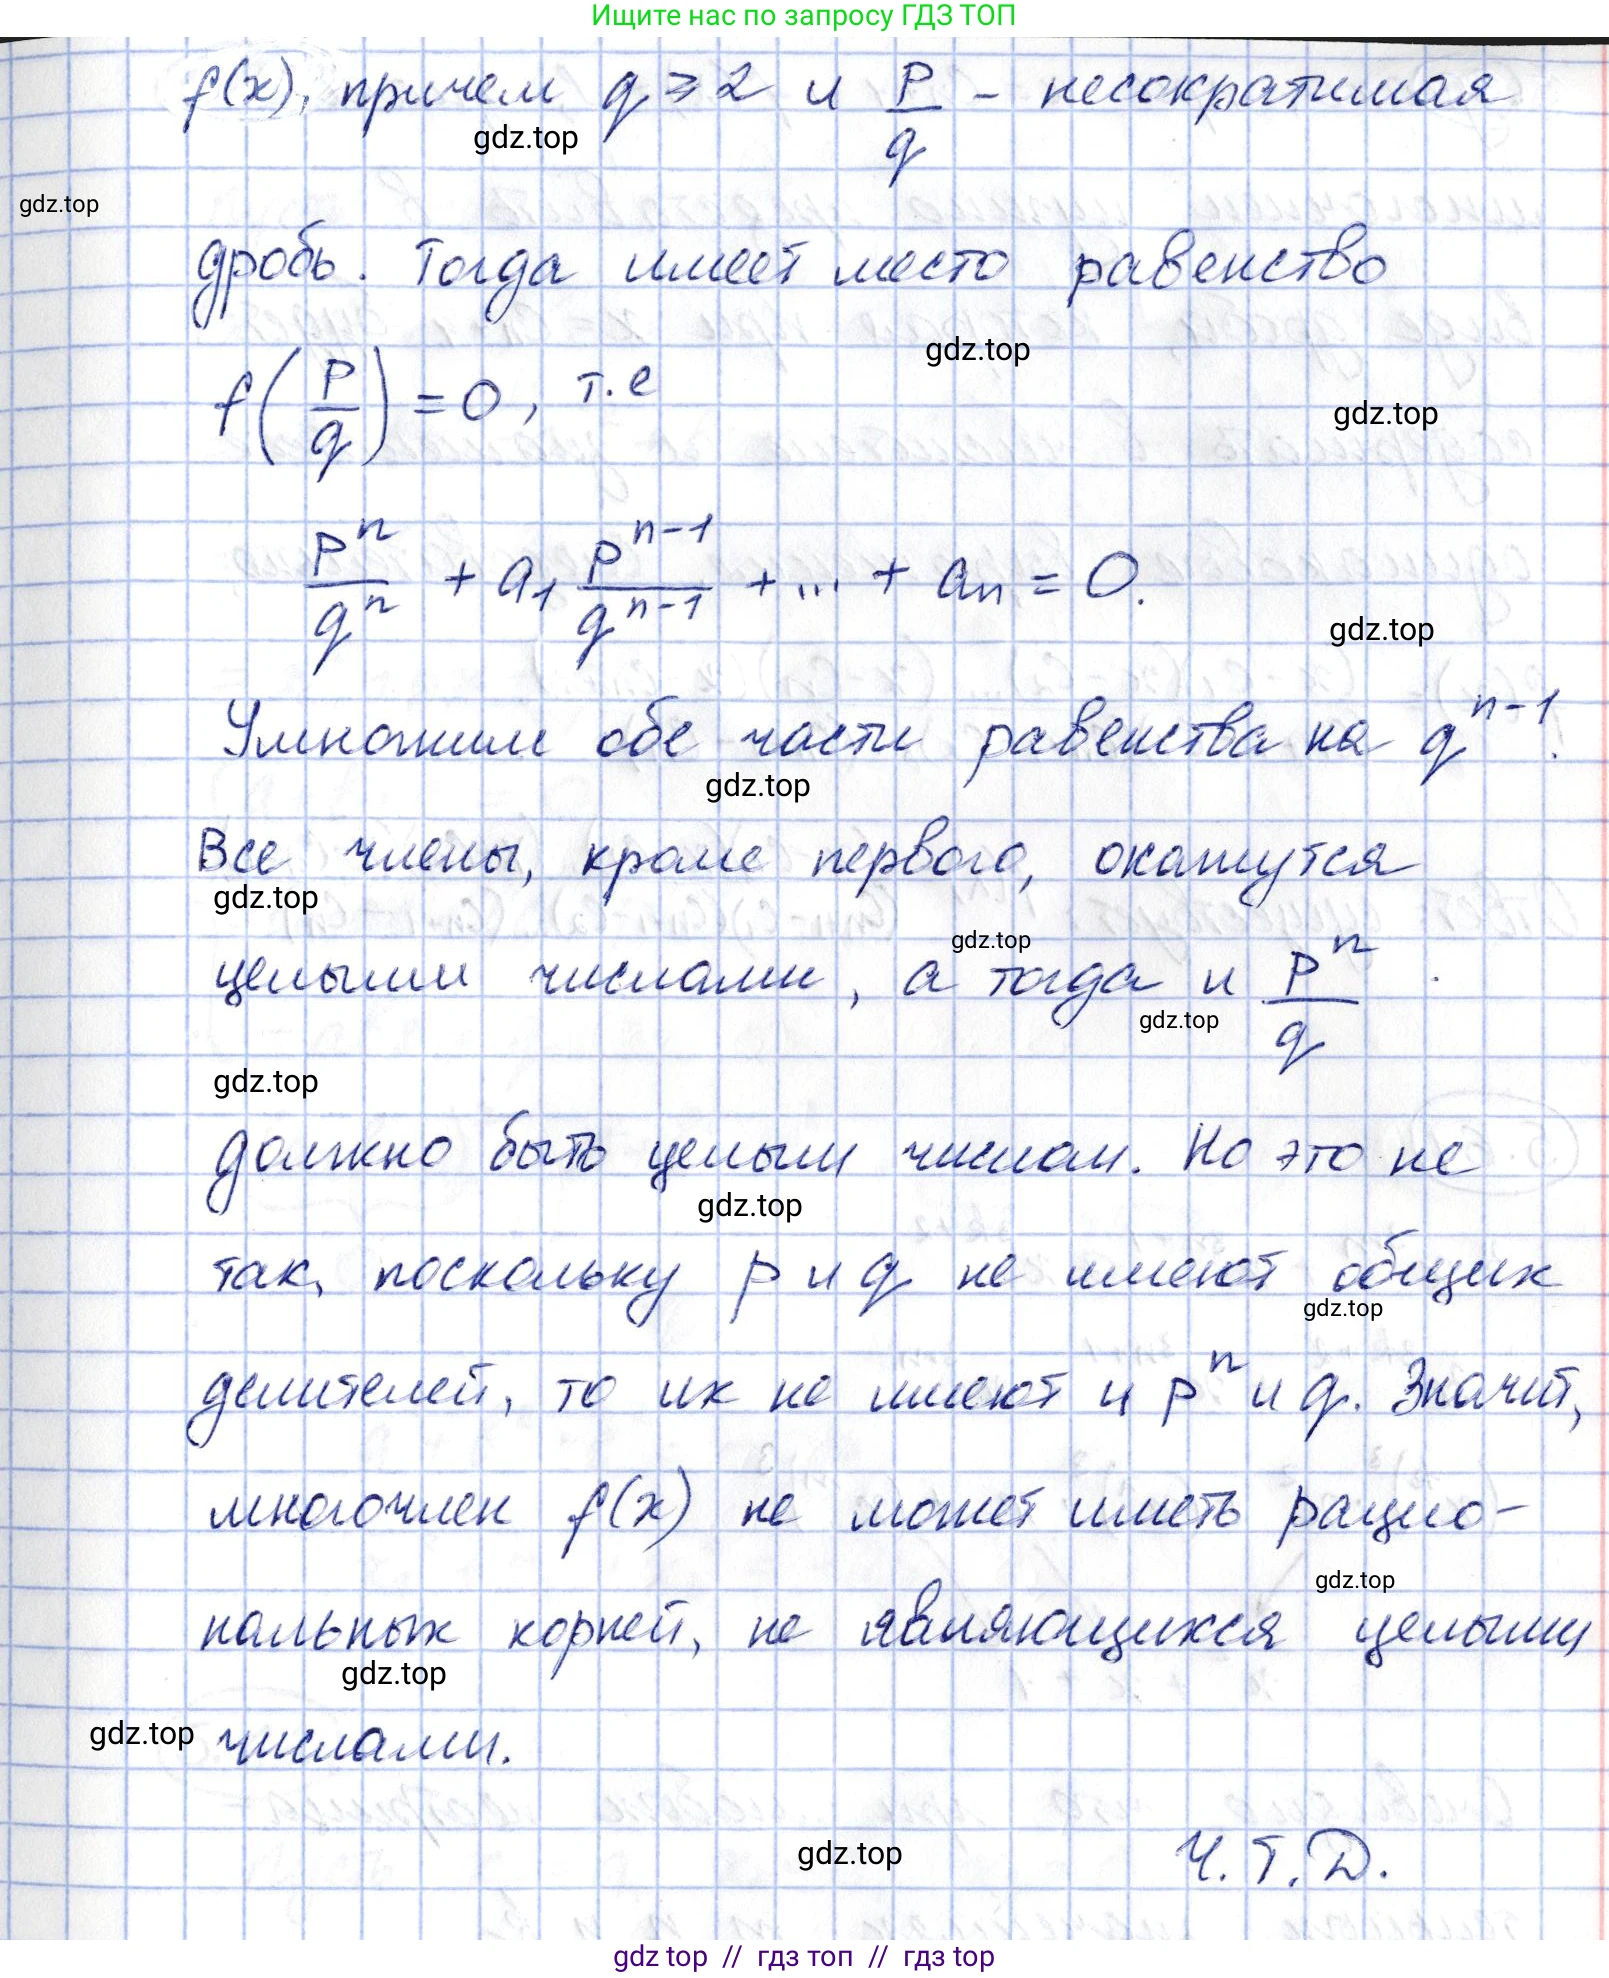 Ищите нас по запросу ГДЗ ТОП
f(x), причем q ⩾ 2 и p/q - несократимая
gdz.top
gdz.top
дробь. Тогда имеет место равенство
gdz.top
f(p/q) = 0, т.е
gdz.top
p^n/q^n + a₁ p^(n-1)/q^(n-1) + ... + aₙ = 0.
gdz.top
Умножим обе части равенства на q^(n-1).
gdz.top
Все члены, кроме первого, окажутся
gdz.top
gdz.top
целыми числами, а тогда и p^n/q
gdz.top
gdz.top
должно быть целым числом. Но это не
gdz.top
так, поскольку p и q не имеют общих
gdz.top
делителей, то их не имеют и p^n и q. Значит,
многочлен f(x) не может иметь рацио-
gdz.top
нальных корней, не являющихся целыми
gdz.top
gdz.top
числами.
gdz.top
Ч.Т.Д.
gdz top // гдз топ // гдз top